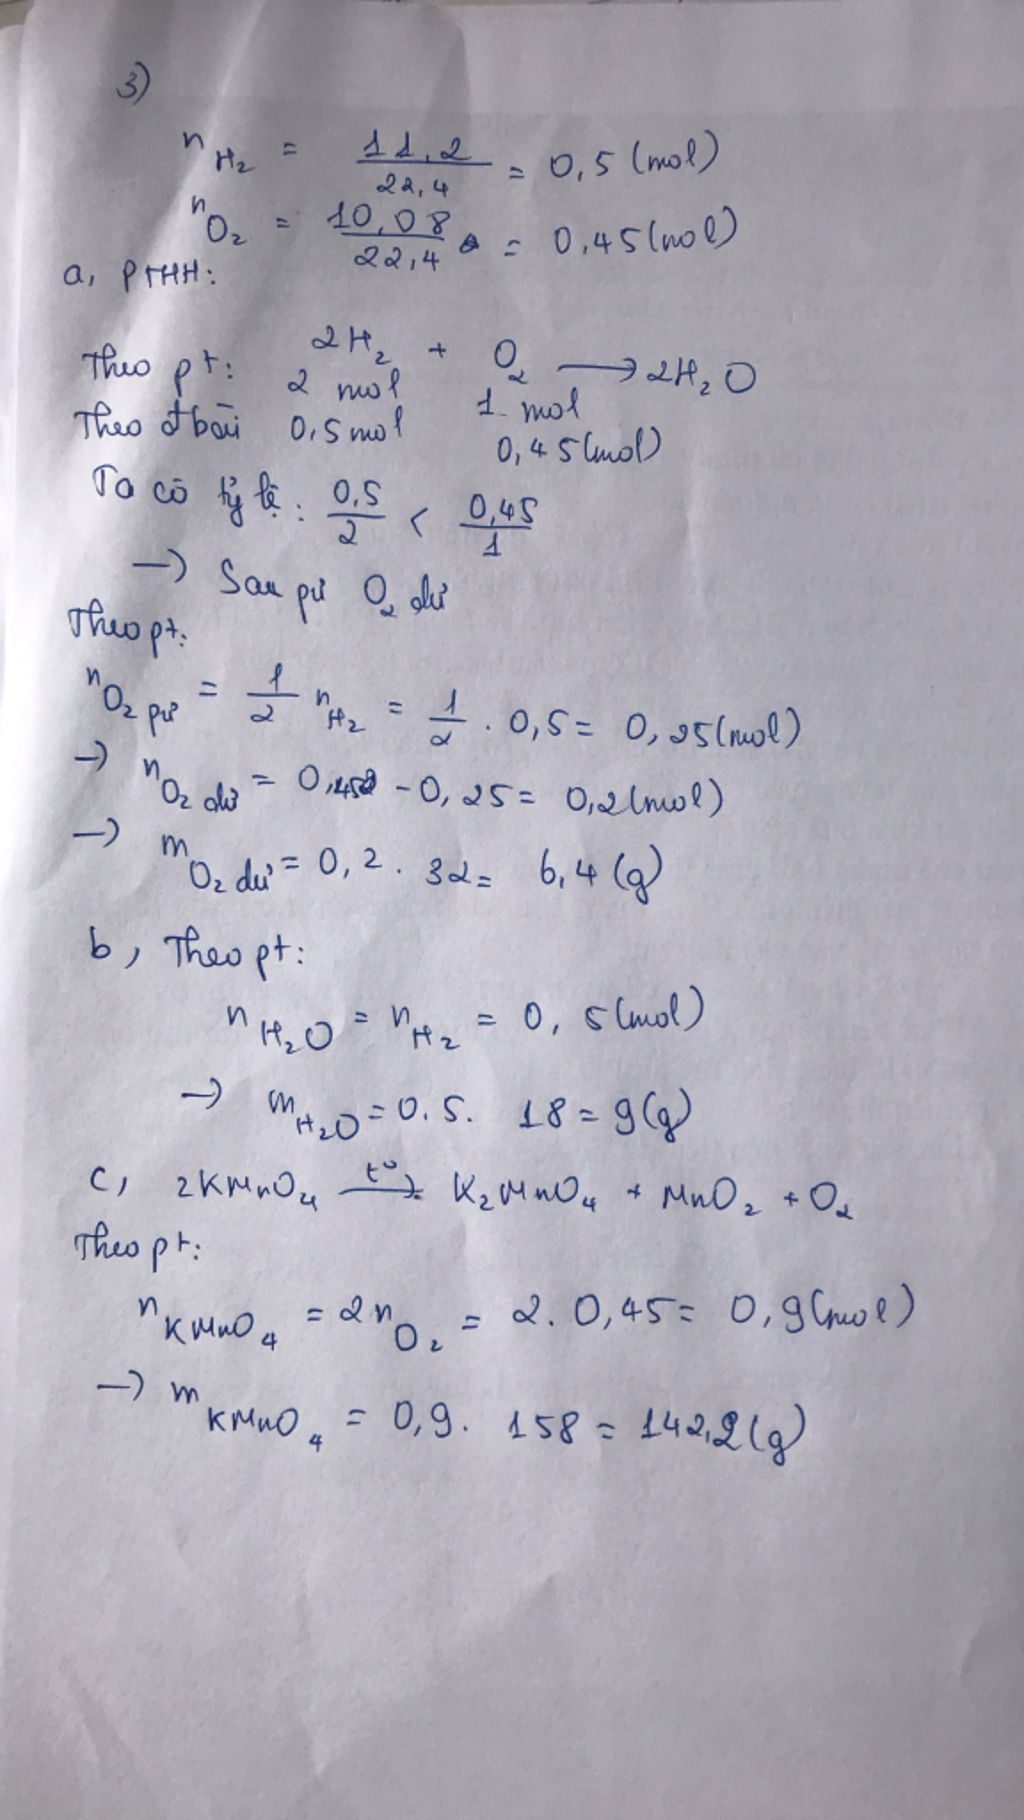 3)
n H₂ = 11,2/22,4 = 0,5 (mol)
n O₂ = 10,08/22,4 = 0,45 (mol)
a, PTHH:
2H₂ + O₂ → 2H₂O
Theo pt: 2 mol 1 mol
Theo đbài 0,5 mol 0,45 (mol)
Ta có tỷ lệ: 0,5/2 < 0,45/1
→ Sau pư O₂ dư
Theo pt:
n O₂ pư = 1/2 n H₂ = 1/2 . 0,5 = 0,25 (mol)
→ n O₂ dư = 0,45 - 0,25 = 0,2 (mol)
→ m O₂ dư = 0,2 . 32 = 6,4 (g)
b, Theo pt:
n H₂O = n H₂ = 0,5 (mol)
→ m H₂O = 0.5. 18 = 9 (g)
c, 2KMnO₄ t° → K₂MnO₄ + MnO₂ + O₂
Theo pt:
n KMnO₄ = 2 n O₂ = 2. 0,45 = 0,9 (mol)
→ m KMnO₄ = 0,9. 158 = 142,2 (g)